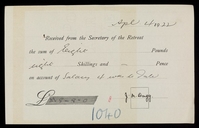 Apl 4 1922
Received from the Secretary of the Retreat
the sum of Eight Pounds
eight Shillings and — Pence
on account of Salary
£
1040